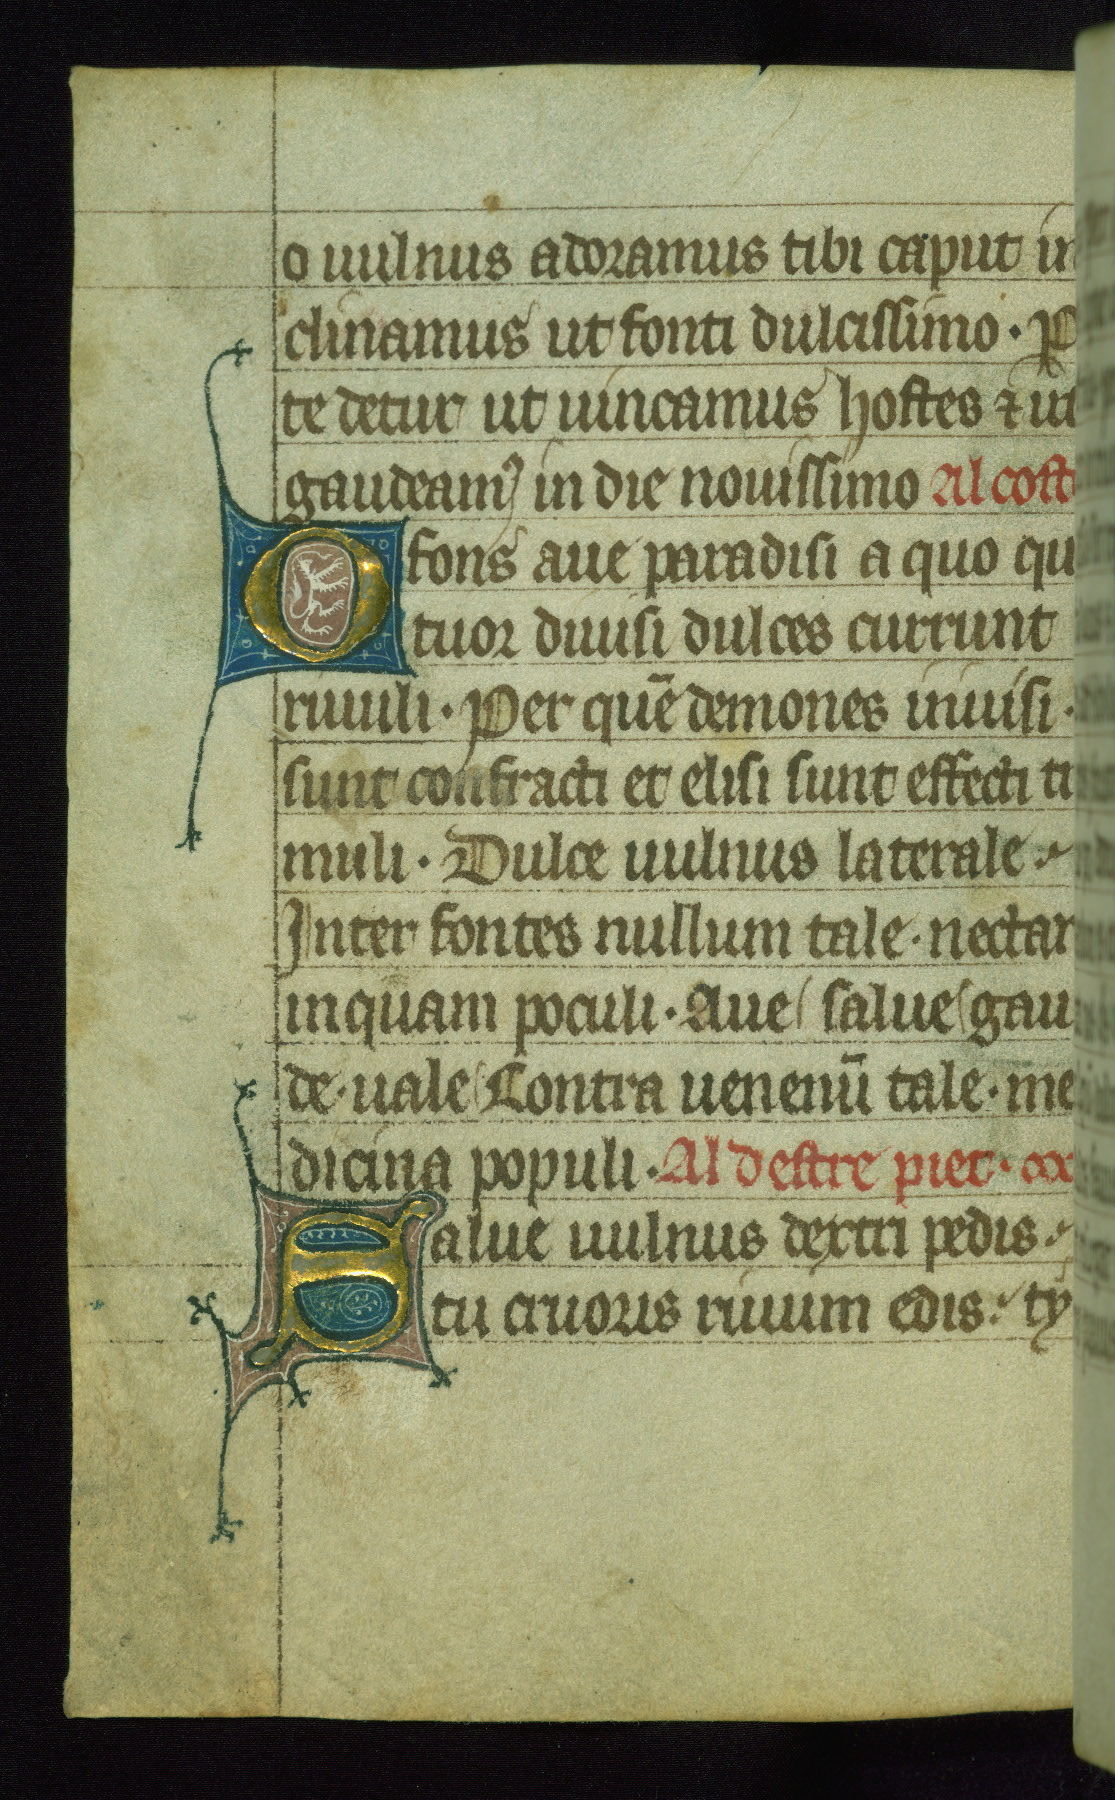 o uulnus adoramus tibi caput in
clinamus ut fonti dulcissimo · P
te detur ut uincamus hostes ⁊ ut
gaudeamꝰ in die nouissimo Al cost
O fons aue paradisi a quo qu
tuor diuisi dulces currunt
riuuli · Per quē demones inuisi ·
sunt confracti et elisi sunt effecti ti
muli · Dulce uulnus laterale ·
Inter fontes nullum tale · nectar
inquam poculi · Aue salue gau
de · uale Contra uenenū tale · me
dicina populi · Al destre piet ·
Salue uulnus dextri pedis ·
tu cruoris riuum edis · ty